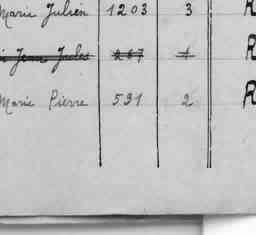 Marie Julien 1203 3 R
Jean Jules 267 1 R
Marie Pierre 531 2 R